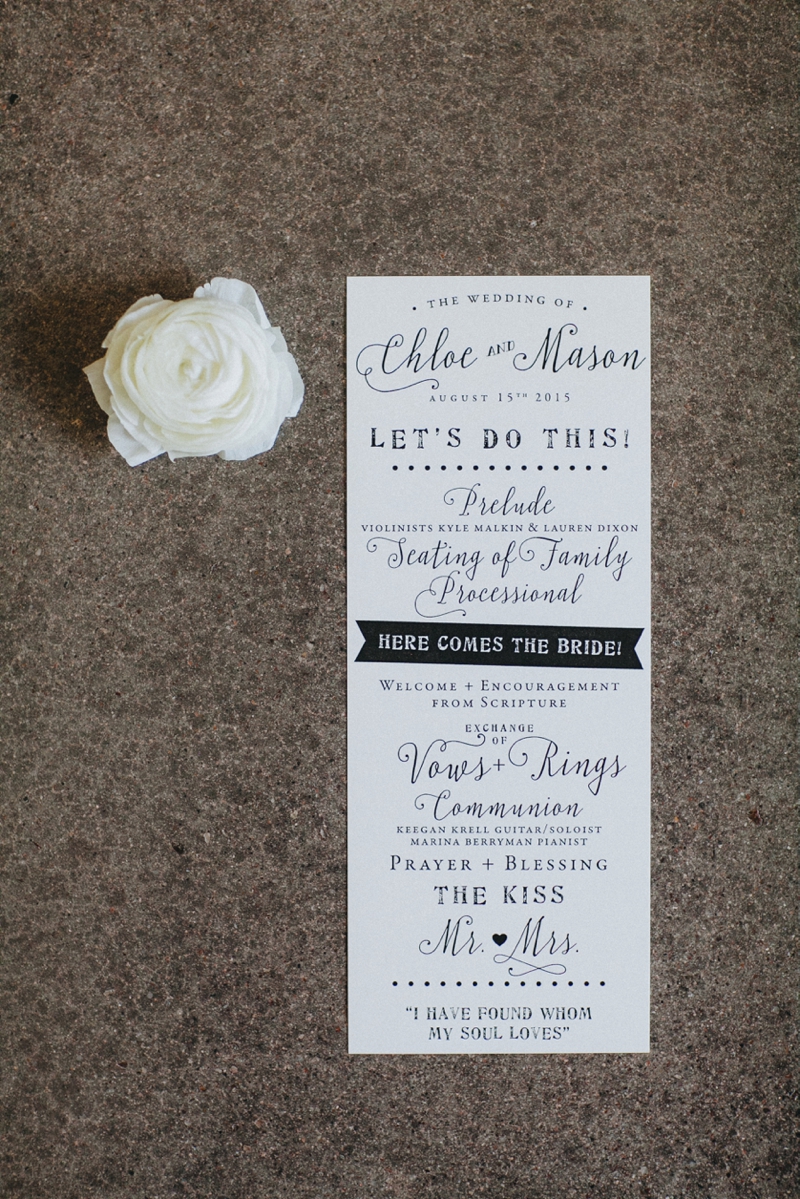 THE WEDDING OF
Chloe AND Mason
AUGUST 15TH 2015
LET'S DO THIS!
Prelude
VIOLINISTS KYLE MALKIN & LAUREN DIXON
Seating of Family
Processional
HERE COMES THE BRIDE!
WELCOME + ENCOURAGEMENT
FROM SCRIPTURE
EXCHANGE
OF
Vows + Rings
Communion
KEEGAN KRELL GUITAR/SOLOIST
MARINA BERRYMAN PIANIST
PRAYER + BLESSING
THE KISS
Mr. ♥ Mrs.
"I HAVE FOUND WHOM
MY SOUL LOVES"